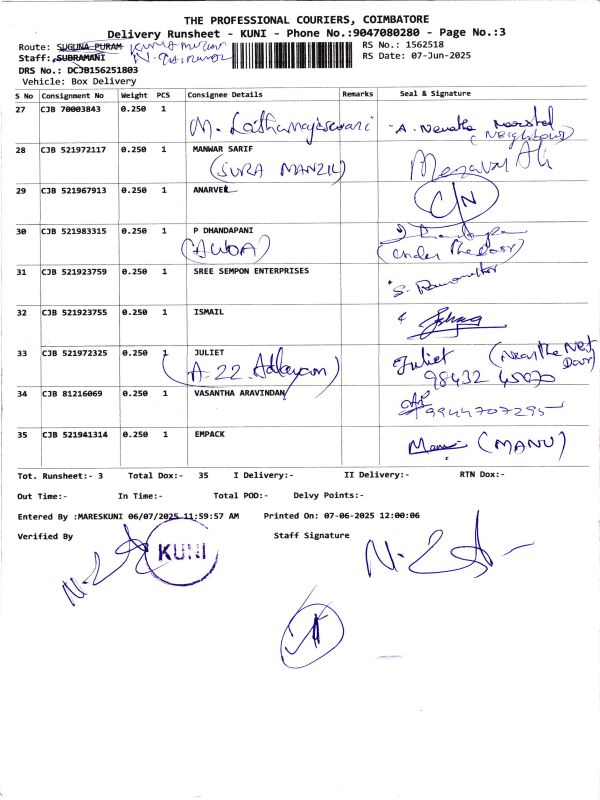 THE PROFESSIONAL COURIERS, COIMBATORE
Delivery Runsheet - KUNI - Phone No.:9047080280 - Page No.:3
Route: SUGUNA PURAM
RS No.: 1562518
Staff: SUBRAMANI
RS Date: 07-Jun-2025
DRS No.: DCJB156251803
Vehicle: Box Delivery
S No Consignment No Weight PCS Consignee Details Remarks Seal & Signature
27 CJB 70003843 0.250 1
28 CJB 521972117 0.250 1 MANWAR SARIF
(SURA MANZIL)
29 CJB 521967913 0.250 1 ANARVEL C/N
30 CJB 521983315 0.250 1 P DHANDAPANI
(Under The Door)
31 CJB 521923759 0.250 1 SREE SEMPON ENTERPRISES
32 CJB 521923755 0.250 1 ISMAIL
33 CJB 521972325 0.250 1 JULIET Juliet
A. 22. 98432
34 CJB 81216069 0.250 1 VASANTHA ARAVINDAN 9944707295
35 CJB 521941314 0.250 1 EMPACK (MANU)
Tot. Runsheet:- 3 Total Dox:- 35 I Delivery:- II Delivery:- RTN Dox:-
Out Time:- In Time:- Total POD:- Delvy Points:-
Entered By :MARESKUNI 06/07/2025 11:59:57 AM Printed On: 07-06-2025 12:00:06
Verified By Staff Signature
KUNI